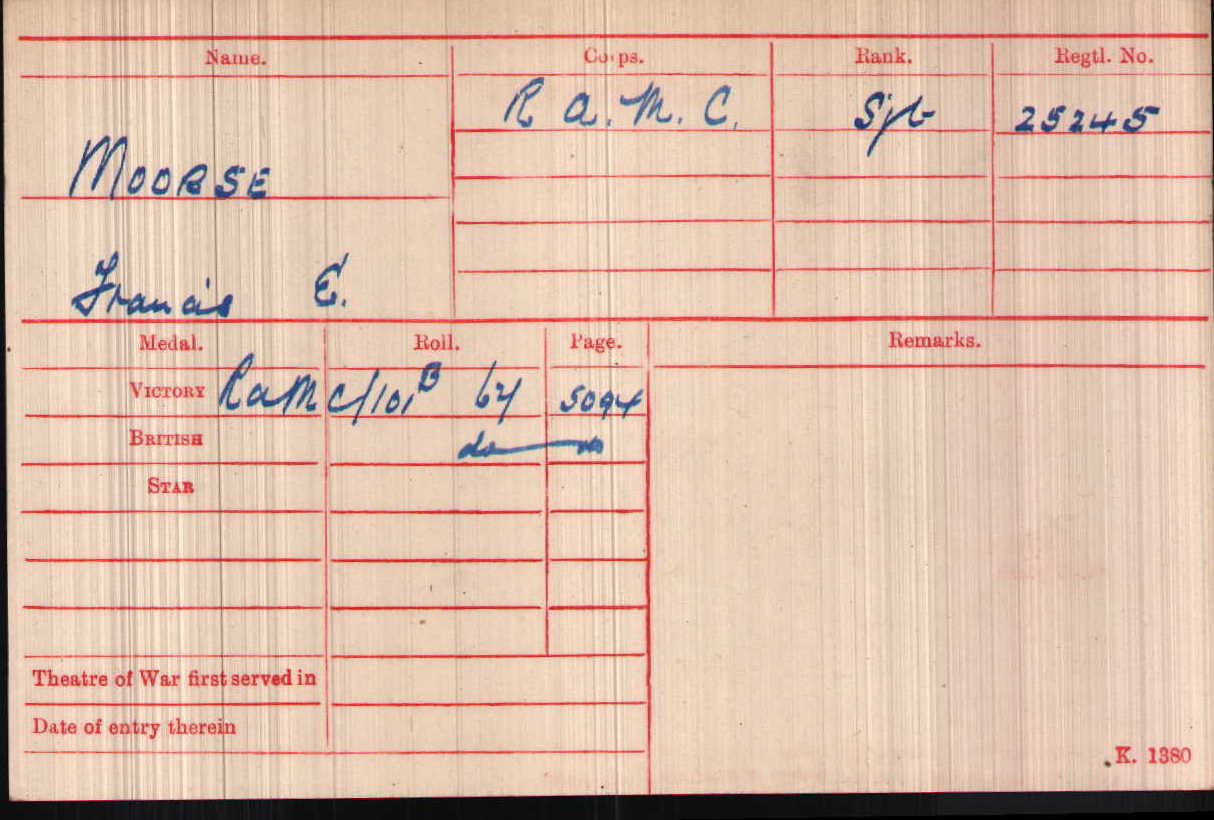 Name. Corps. Rank. Regtl. No.
R A. M. C. Sjt 25245
MOORSE
Francis E.
Medal. Roll. Page. Remarks.
VICTORY RAMC/101B 64 5094
BRITISH do do
STAR
Theatre of War first served in
Date of entry therein
K. 1380